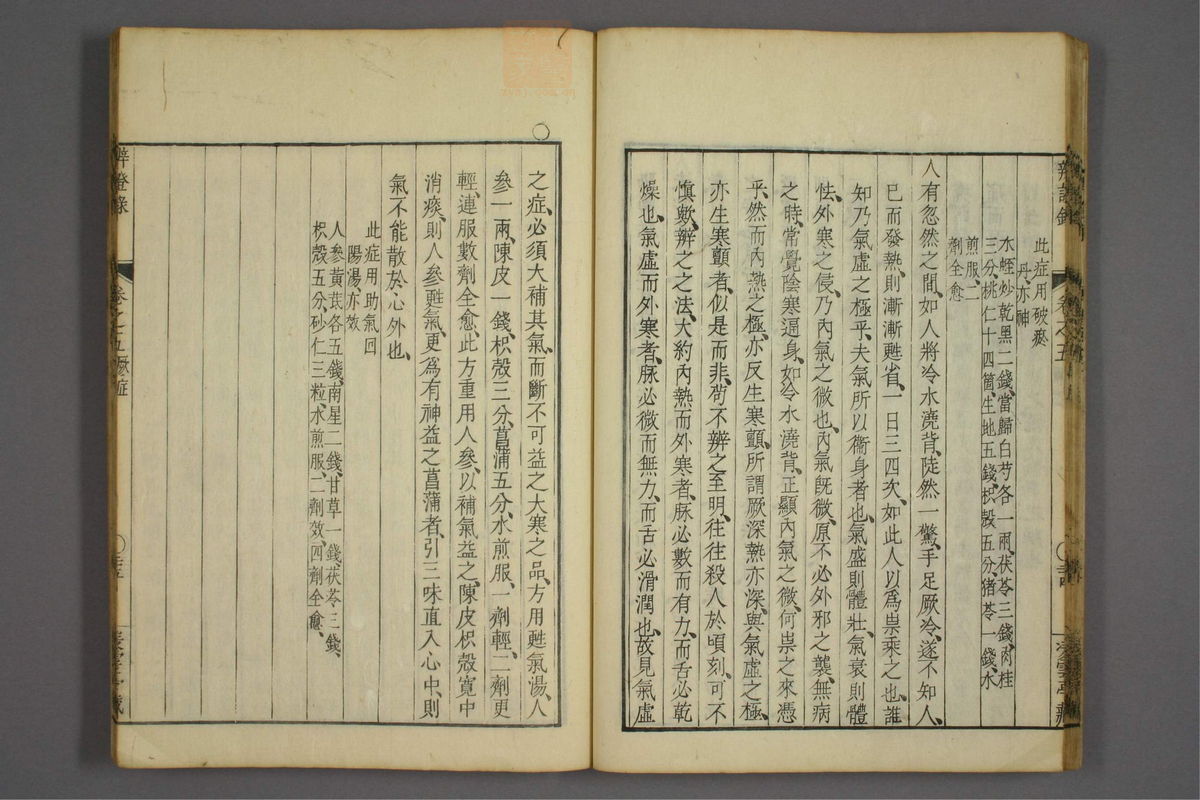 此症用破瘀
丹亦神
水蛭炒乾黑二錢、當歸白芍各一兩、茯苓三錢、肉桂
三分、桃仁十四箇、生地五錢、枳殼五分、猪苓一錢、水
煎服、二
劑全愈
人有忽然之間、如人將冷水澆背、陡然一驚、手足厥冷、遂不知人、
已而發熱、則漸漸甦省、一日三四次、如此人以爲祟乘之也、誰
知乃氣虛之極乎、夫氣所以衛身者也、氣盛則體壯、氣衰則體
怯、外寒之侵、乃內氣之微也、內氣旣微、原不必外邪之襲、無病
之時、常覺陰寒逼身、如冷水澆背、正顯內氣之微、何祟之來憑
乎、然而內熱之極、亦反生寒顫、所謂厥深熱亦深、與氣虛之極、
亦生寒顫者、似是而非、苟不辨之至明、往往殺人於頃刻、可不
慎歟、辨之之法、大約內熱而外寒者、脉必數而有力、而舌必乾
燥也、氣虛而外寒者、脉必微而無力、而舌必滑潤也、故見氣虛
之症、必須大補其氣、而斷不可益之大寒之品、方用甦氣湯、人
參一兩、陳皮一錢、枳殼三分、菖蒲五分、水煎服、一劑輕、二劑更
輕、連服數劑全愈、此方重用人參、以補氣益之、陳皮枳殼寬中
消痰、則人參甦氣、更爲有神益之菖蒲者、引三味直入心中、則
氣不能散於心外也、
此症用助氣回
陽湯、亦效
人參黃芪各五錢、南星二錢、甘草一錢、茯苓三錢、
枳殼五分、砂仁三粒、水煎服、二劑效、四劑全愈、
辨證錄
卷之五厥症